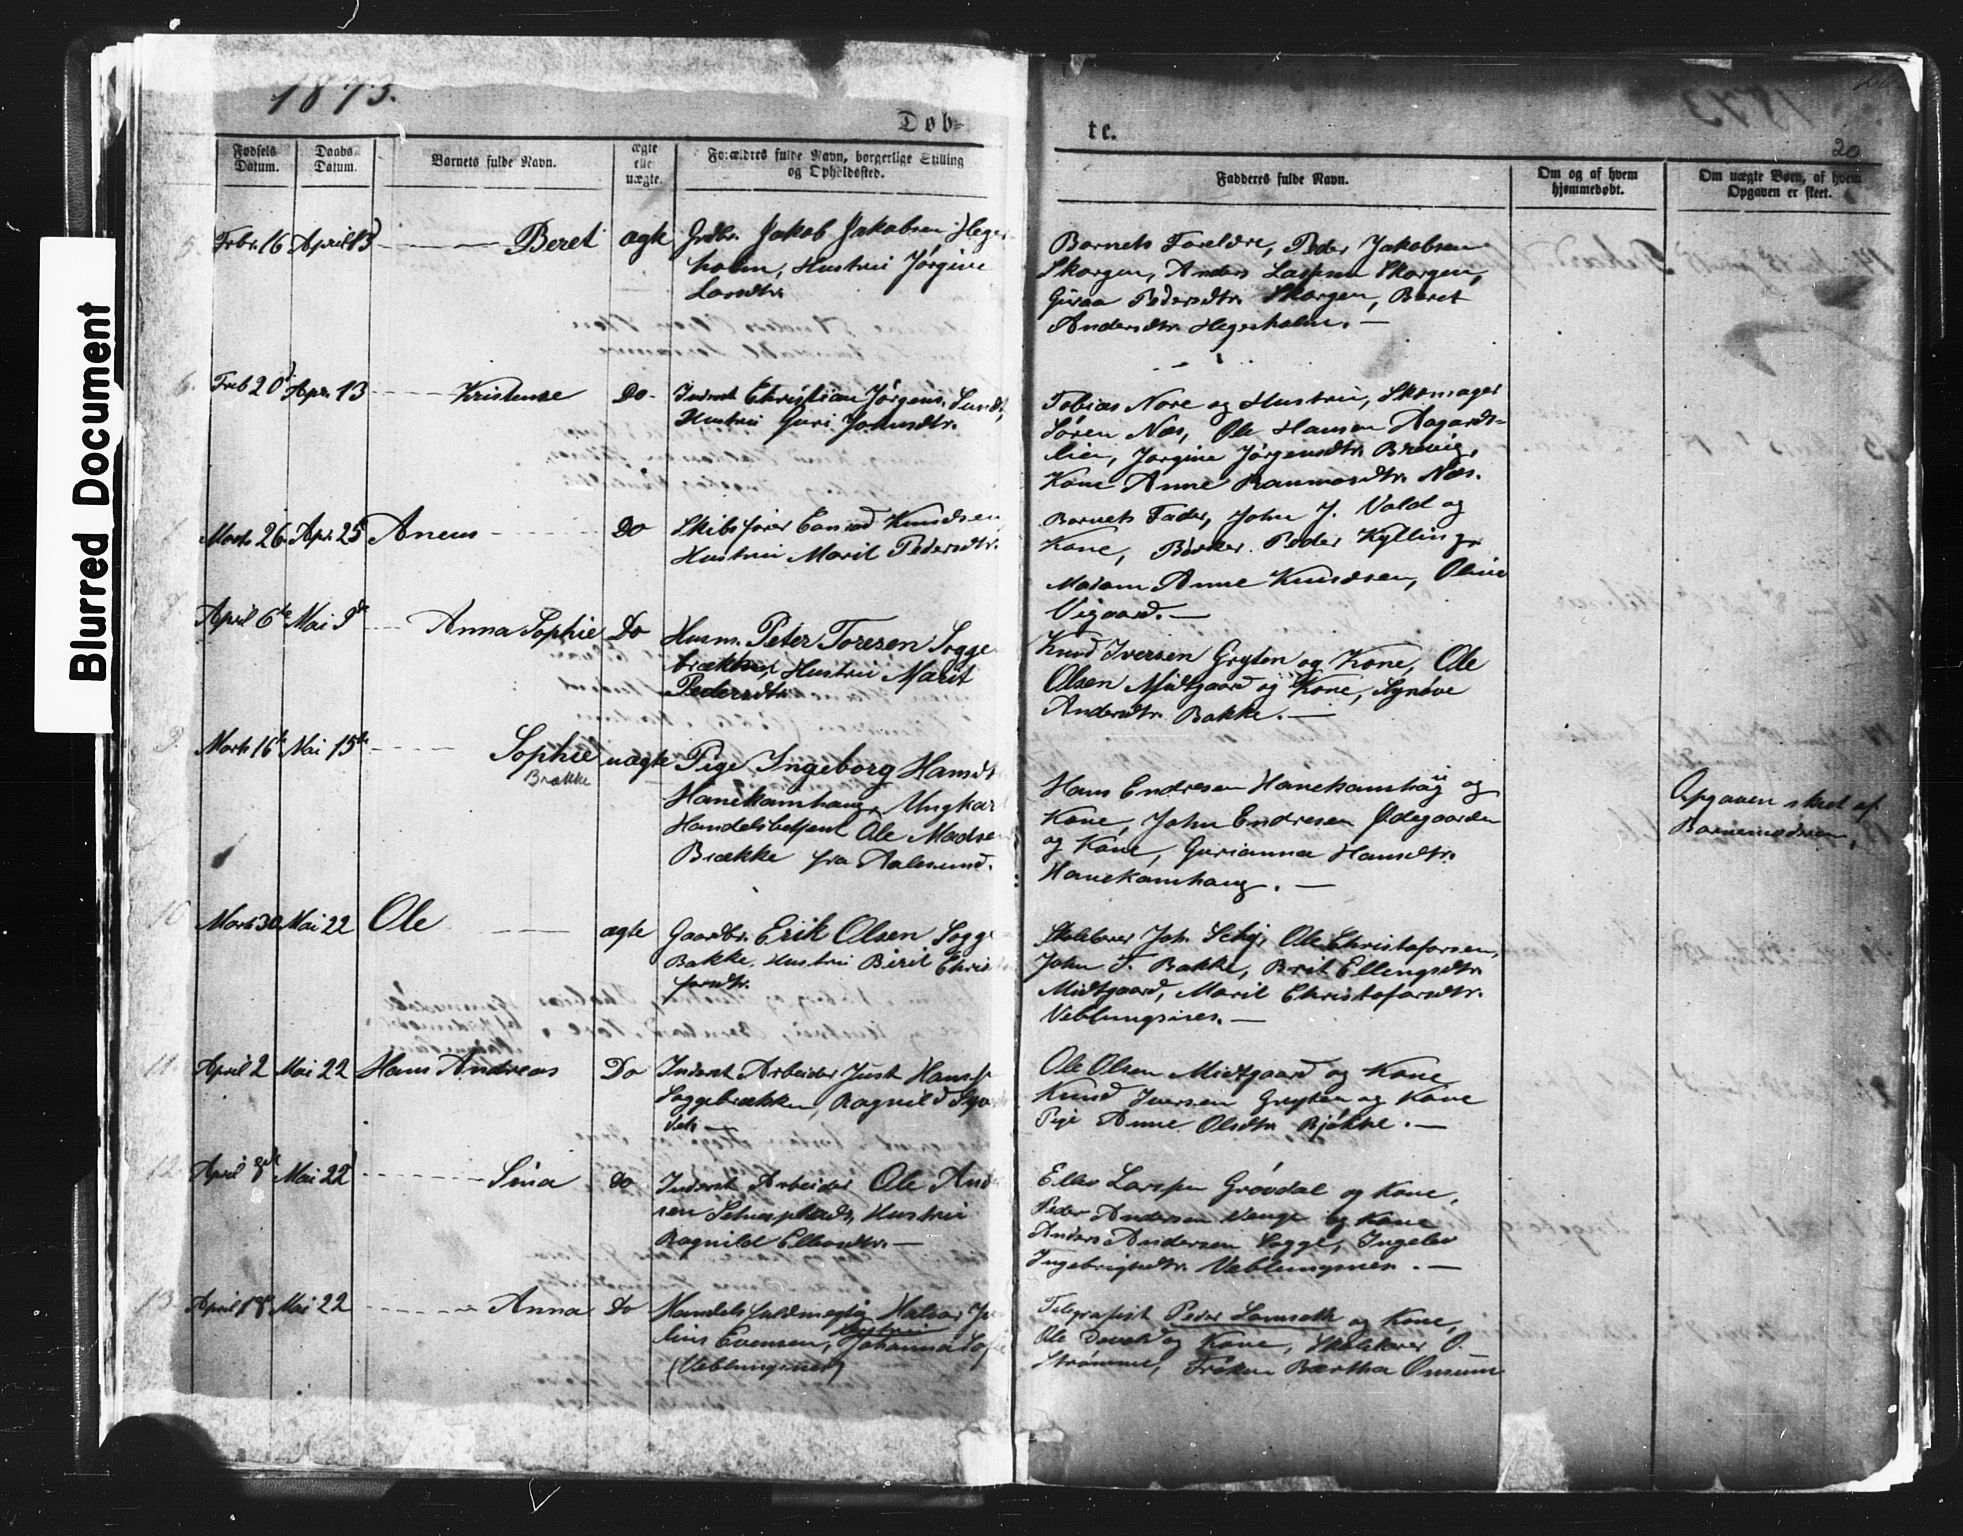 1873.
1873
20
Døb-
te.
Fødsels Datum.
Daabs Datum.
Barnets fulde Navn.
ægte eller uægte.
Forældres fulde Navn, borgerlige Stilling og Opholdssted.
Fadderes fulde Navn.
Om og af hvem hjemmedøbt.
Om uægte Børn, af hvem Opgaven er skeet.
Blurred Document
5. Febr. 16 April 13 Beret ægte Grdbr. Jakob Jakobsen Heges-
holm, Hustrui Jørgine
Larsdtr.
Barnets Forældre, Peder Jakobsen
Skorgen, Anders Larsen Skorgen,
Guraa Pedersdtr. Skorgen, Beret
Andersdtr. Hegesholm. —
6. Feb 20 Apr. 13 Do. Inderst Christian Jørgens. Sundt,
Hustrui Guri Johnsdtr.
Tobias Nore og Hustrui, Skomager
Søren Næs, Ole Hansen Aagaards-
lien, Jørgine Jørgensdtr. Brevig,
Kone Anne Rasmusdtr. Næs.
7. Marts 26 Apr. 25 Do Skibsfører Conrad Knudsen,
Hustrui Marit Pedersdtr.
Barnets Fader, John J. Vold og
Kone, Peder Kylling,
Madam Anne Knudsen, Oline
Vigaard. —
8. April 6te Mai 9de Anna Sophie Do Husm. Peter Toresen Sogge
brækken, Hustrui Marit
Pedersdtr.
Knud Iversen Gryten og Kone, Ole
Olsen Midtgaard og Kone, Synøve
Andersdtr. Bakke. —
9. Marts 16de Mai 15de Sophie uægte Pige Ingeborg Hansdtr
Brække
Hanekamhaug, Ungkarl
Handelsbetjent Ole Madsen
Brække fra Aalesund.
Hans Endresen Hanekamhaug og
Kone, John Endresen Ødegaarden
og Kone, Gurianna Hansdtr.
Hanekamhaug. —
Opgaven skeet af
Barnemoderen.
10 Marts 30 Mai 22 Ole ægte Gaardbr. Erik Olsen Sogge-
Bakke, Hustrui Beret Christ
forsdtr.
Skolelærer Joh. Ole Christofersen,
John T. Bakke, Brit Ellingsdtr.
Midtgaard, Marit Christofersdtr.
Veblungsnes. —
11. April 2 Mai 22 Hans Andreas Do Inderst Arbeider Just Hans
Soggebrækken, Ragnild
Ole Olsen Midtgaard og Kone
Knud Iversen Gryten og Kone
Pige Anne Olsdtr. —
12. April 8de Mai 22 Sina Do Inderst Arbeider Ole And
sen Hustrui
Ragnild Ellevsdtr. —
Ellev Larsen Grøvdal og Kone,
Peder Andersen Venge og Kone
Anders Andersen Sogge, Ingelev
Ingebrigtsdtr. Veblungsnes. —
13. April 18 Mai 22 Anna Do Handelsfuldmægtig Halvor Ju
lius Evensen, Hustrui Johanna Sofie
(Veblungsnes)
Telegrafist Peder Lamseth og Kone,
Ole Devold og Kone, Skolelærer O.
Strømme, Frøken Bertha Onsum